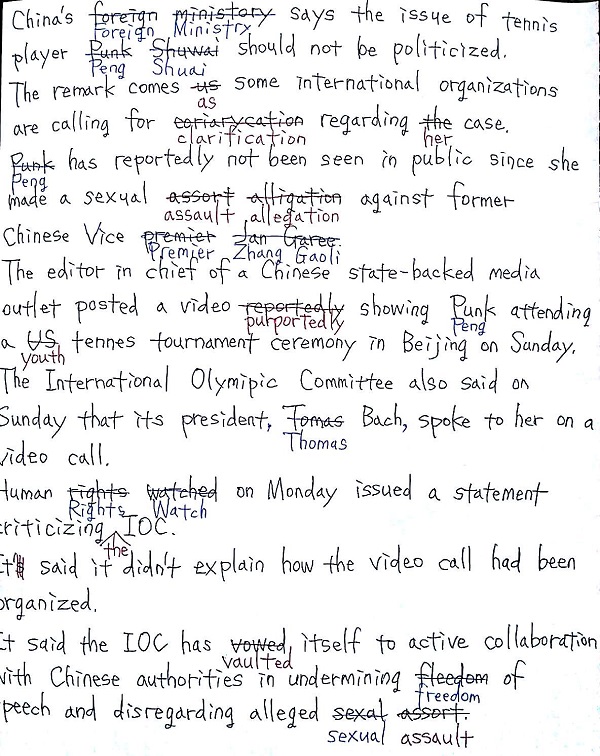 China's foreign ministory says the issue of tennis
Foreign Ministry
player Punk Shuwai should not be politicized.
Peng Shuai
The remark comes us some international organizations
as
are calling for coriarycation regarding the case.
clarification her
Punk has reportedly not been seen in public since she
Peng
made a sexual assort alligation against former
assault allegation
Chinese Vice premier Jan Garee.
Premier Zhang Gaoli
The editor in chief of a Chinese state-backed media
outlet posted a video reportedly showing Punk attending
purportedly Peng
a US tennes tournament ceremony in Beijing on Sunday.
youth
The International Olymipic Committee also said on
Sunday that its president, Tomas Bach, spoke to her on a
Thomas
video call.
Human rights watched on Monday issued a statement
Rights Watch
criticizing IOC.
the
It said it didn't explain how the video call had been
organized.
It said the IOC has vowed itself to active collaboration
vaulted
with Chinese authorities in undermining fleedom of
freedom
speech and disregarding alleged sexal assort.
sexual assault